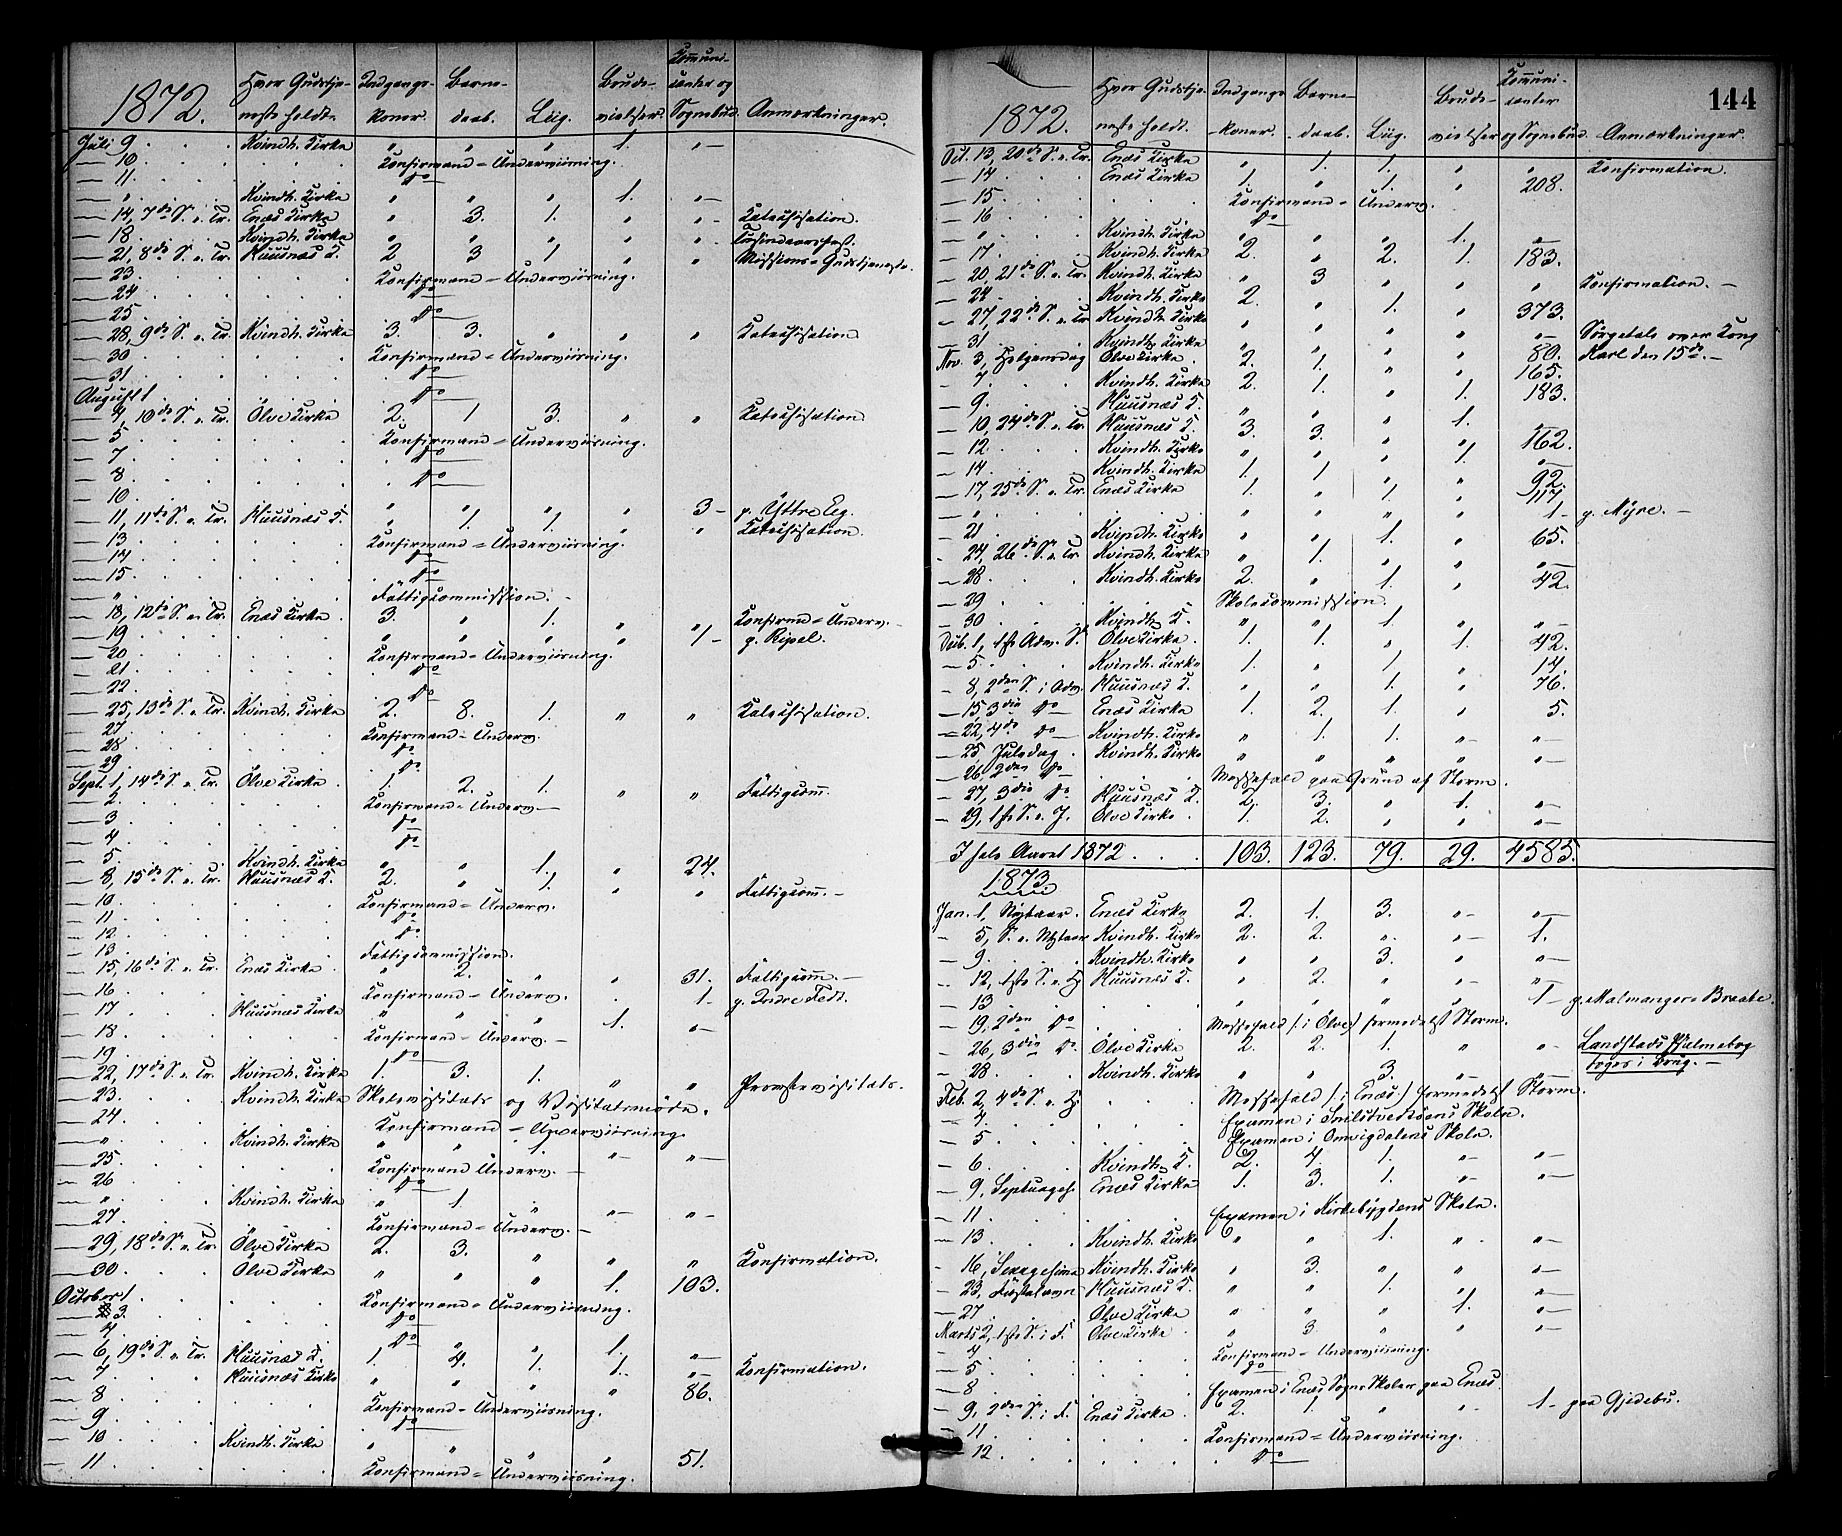 1872. Hvor Gudstje- Indgangs- Barne- Brude- Communi-
neste holdt. koner. daab. Liig. vielser. canter og Sognebud. Anmærkninger.
Juli 9 . . . Kvindh. Kirke " " " 1. "-
— 10. . . . Confirmand=Underviisning.
— 11. . . . do
— " . . . Kvindh. Kirke " " " 1. "-
— 14, 7de S. e. Tr. Enæs Kirke " 3. 1. " " - Catechisation.
— 18. . . . Kvindh. Kirke " " " " " -
— 21, 8de S. e. Tr. Huusnæs K. 2 3 1 " " Missions=Gudstjeneste.
— 23. . . . Confirmand=Underviisning.
— 24 . . . do
— 25. . . . do
— 28, 9de S. e. Tr. Kvindh. Kirke 3. 3. " " " Catechisation
— 30. . . . Confirmand=Underviisning.
— 31. . . . do
August 1. . . . do
— 4, 10de S. e. Tr. Ølve Kirke 2. 1 3. " " Catechisation
— 5 . . . Confirmand=Underviisning.
— 7. . . . do
— 8. . . . do
— 10. . . . " " " " 3 - p. Yttre Eeg.
— 11, 11te S. e. Tr. Huusnæs K. " 1. 1. " " Catechisation.
— 13. . . . Confirmand=Underviisning.
— 14. . . . do
— 15. . . . do
— " . . . Fattigcommission. -
— 18, 12te S. e. Tr. Enæs Kirke 3. " 1. " " Confirmd=Underv. -
— 19. . . . " " " " 1- p. Ripel.
— 20. . . . Confirmand=Underviisning.
— 21. . . . do
— 22. . . . do
— 25, 13de S. e. Tr. Kvindh. Kirke 2. 8. 1. " " Catechisation.
— 27. . . . Confirmand=Underv.
— 28. . . . do
— 29. . . . do
Sept. 1, 14de S. e. Tr. Ølve Kirke 1. 2. 1. " " Fattigcom.
— 2. . . . Confirmand=Underv. —
— 3. . . . do
— 4. . . . do
— 5. . . . Kvindh. Kirke " " 1. " 24.
— 8, 15de S. e. Tr. Huusnæs K. 2. " 1. " " Fattigcom. -
— 10. . . . Confirmand=Underv.
— 11. . . . do
— 12. . . . do
— 13. . . . Fattigcommission.
— 15, 16de S. e. Tr. Enæs Kirke " 2. " " 31. Fattigcom. -
— 16. . . . Confirmand=Underv. 1- p. Indre Fedt.
— 17. . . . Huusnæs Kirke " " " 1. "-
— 18. . . . Confirmand=Underv. -
— 19. . . . do
— 22, 17de S. e. Tr. Kvindh. Kirke 1. 3. 1. " " Provstevisitats.
— 23. . . . Kvindh. Kirke Skolevisitats og Visitatsmøde.
— 24. . . . Confirmand=Underviisning.
— " . . . Kvindh. Kirke " " 1. "- "-
— 25. . . . Confirmand Underv. -
— 26. . . . do
— " . . . Kvindh. Kirke " 1. " "- "-
— 27. . . . Confirmand=Underv. -
— 29, 18de S. e. Tr. Ølve Kirke 2. 3. " " " Confirmation.
— 30. . . . Ølve Kirke " " " 1. 103.
October 1. . . . Confirmand=Underviisning.
— 3. . . . do
— 4. . . . do
— 6, 19de S. e. Tr. Huusnæs K. 1. 4. 1. 1. "- Confirmation.
— 7. . . . Huusnæs Kirke " " " " 86.
— 8 . . . Confirmand=Underviisning.
— 9. . . . do
— 10. . . . Kvindh. Kirke " " " " 51.
— 11. . . . Confirmand=Underviisning.
144
1872. Hvor Gudstje- Indgangs- Barne- Brude- Communi-
neste holdt. koner. daab. Liig. vielser canter og Sognebud. Anmærkninger.
Oct. 13, 20de S. e. Tr. Enæs Kirke " 1. 1. " " Confirmation.
— 14 . . . Enæs Kirke 1. " 1. " 208.
— 15 . . . Confirmand=Underv.
— 16 . . . do
— " . . . Kvindh. Kirke " " " 1. "-
— 17. . . . Kvindh. Kirke 2. " 2. 1. 183.
— 20, 21de S. e. Tr. Kvindh. Kirke " 3 " " " Confirmation. -
— 24 . . . Kvindh. Kirke 2. " 1. " 373.
— 27, 22de S. e. Tr. Kvindh. Kirke " " " " "- Sørgetale over Kong
— 31. . . . Kvindh. Kirke " " " " 80. Karl den 15de. -
Nov. 3, Helgensdag Ølve Kirke . 2. 1. " " 165.
— 7. . . . Kvindh. Kirke 2. 1. " 1. 183.
— 9. . . . Huusnæs K. " " " 1. -
— 10, 24de S. e. Tr. Huusnæs K. 3. 3. " " 162.
— 12. . . . Kvindh. Kirke " " " 1. "-
— 14. . . . Kvindh. Kirke 1. 1 " " 92.
— 17, 25de S. e. Tr. Enæs Kirke 1. " 1. " 117.
— " . . . " " " " 1- p. Myre. -
— 21. . . . Kvindh. Kirke " " 1. " 65.
— 24, 26de S. e. Tr. Kvindh. Kirke " 1. " " -
— 28. . . . Kvindh. Kirke 2. " 1. " 42.
— 29 . . . Skolecommission.
— 30. . . . Kvindh K. " " 1. " -
Decb. 1, 1ste Adv. S. Ølve Kirke . 1. 1. " 1. 42.
— 5. . . . Kvindh. Kirke 1. " 1. " 14.
— 8, 2den S. i Adv. Huusnæs K. " " 1. " 76.
— 15, 3die do Enæs Kirke 1. 2. 1. " 5.
— 22, 4de do Kvindh. Kirke " 1. 1. "- "-
— 25 Juledag . Kvindh. Kirke " " " " "-
— 26 2den do . . . Messefald paa Grund af Storm.
— 27, 3die do Huusnæs K. 2. 3. " 1. "-
— 29, 1ste S. e. J. Ølve Kirke . 1. 2. " " "-
I hele Aaret 1872 . . . 103. 123. 79. 29. 4585.
1873.
Jan. 1, Nytaar. Enæs Kirke 2. 1. 3. "- "-
— 5, S. e. Nytaar Kvindh. Kirke 2. 2. " "- 1.
— 9. . . . Kvindh. Kirke " " 3. " "-
— 12, 1ste S. e. Hj Huusnæs K. " 2. " "- "-
— 13 . . . " " " " 1- p. Malmanger Braate.
— 19, 2den do . . . Messefald (: i Ølve) formedelst Storm.
— 26, 3die do. Ølve Kirke 2. 2. 1. " "- Landstads Psalmebog
— 28. . . . Kvindh. Kirke " " 3. "- "- toges i Brug. -
Feb. 2, 4de S. e. Hj . . . Messefald (: i Enæs) formedelst Storm.
— 4. . . . Examen i Snilstvedtøens Skole.
— 5. . . . Examen i Omvigdalens Skole.
— 6. . . . Kvindh. K. 2. 4. 1. "- "-
— 9, Septuages. Enæs Kirke 1. 3. 1. " "-
— 11 . . . Examen i Kirkebygdens Skole.
— 13. . . . Kvindh. Kirke " " 1. " "-
— 16, Sexagesima Kvindh. Kirke " 3. " " "-
— 23, Fastelavn Huusnæs K. " " 1. " "-
— 27. . . . Ølve Kirke " " " 1. "-
Marts 2, 1ste S. i F. Ølve Kirke . " 3. " " "-
— 4 . . . Confirmand=Underviisning.
— 5. . . . do
— 8 . . . Examen i Enæs Sogns Skoler paa Enæs.
— 9, 2den S. i F. Enæs Kirke . 2. 1. " "- 1- paa Gjedebu.
— 11. . . . Confirmand=Underviisning.
— 12. . . . do